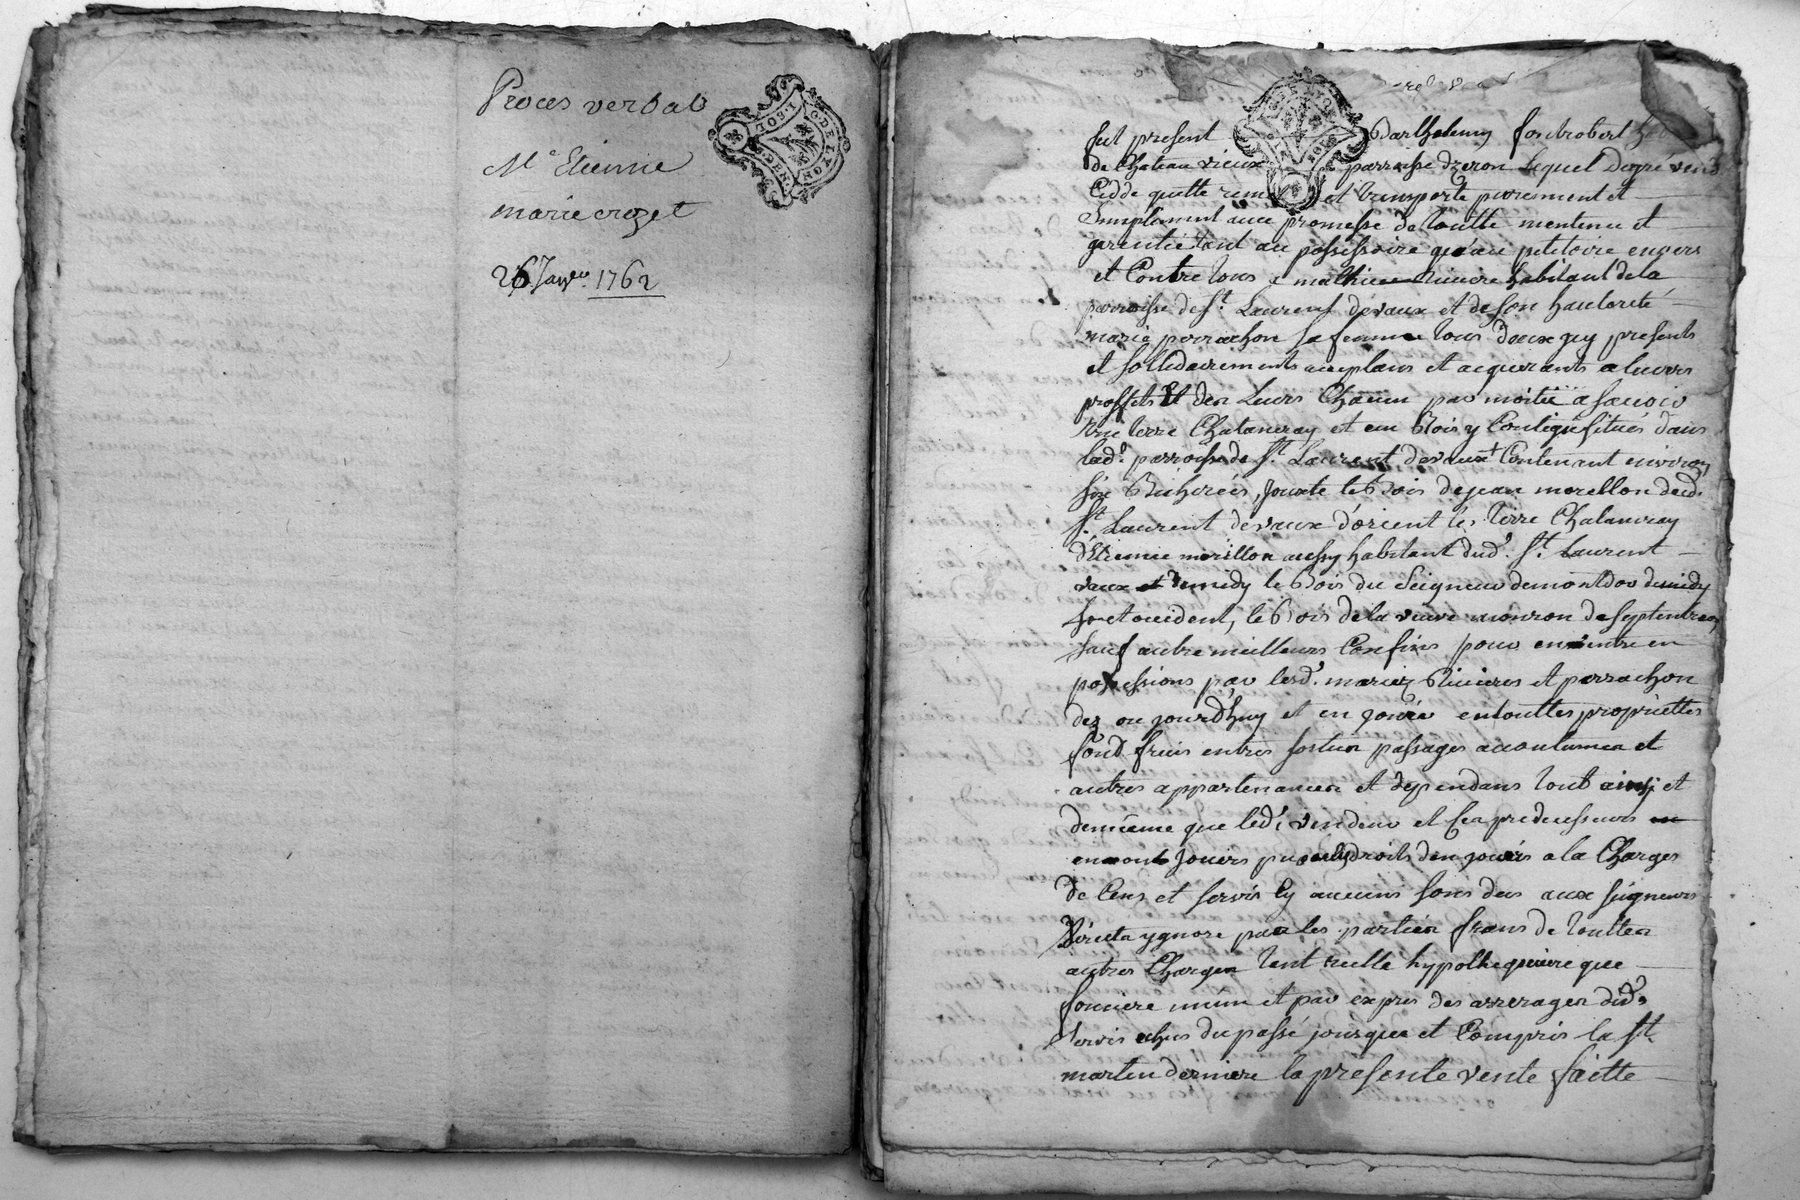 Proces verbal
Me Etienne
marie crozet
26 Janv. 1762
GDE LYON
fut present Barthelemy fontrobert
de Chateau vieux parroisse dzeron lequel degré vend
Cedde quitte rem et transporte purement et
Simplement avec promesse de toutte mentenue et
garentie tant au possessoire qu'au petitoire envers
et Contre tous a mathieu Riviere habitant de la
parroisse de St Laurent devaux et de son hautorité
marie perrachon sa femme tous deux icy presents
et sollidairements acceptans et acquerants a leurs
proffits et des Leurs Chacun par moitié a savoir
Une terre Chalanvray et un Bois y Contigu situés dans
lad. parroisse de St Laurent devaux Contenant environ
six Bicherées, Jouxte le Bois de jean morellon dud.
St Laurent devaux d'orient les terre Chalanvray
d'Etienne morillon aussy habitant dud. St. Laurent
vaux et demidy le Bois du Seigneur de montdor de midy
et occident, le Bois de la veuve mouron de septentrion
sauf autre meilleurs Confins pour en entre en
possessions par lesd. mariez Rivieres et perrachon
dez au jourd'huy et en jouir en touttes proprietles
fond fruis entres sorties passages accoutumea et
autres appartenances et dependans tout ainsi et
de mème que led. vendeur et ses predecesseurs
en ont Jouirs droits den jouir a la Charges
de Cens et servis sy aucuns sons deus aux seigneurs
directs ygnore par les parties frans de touttes
autres Charges tent reelle hypothequaire que
fonciere mém et par expres des arrerages dud.
servis echus du passé jousque et Compris la St
martin derniere la présente vente faitte